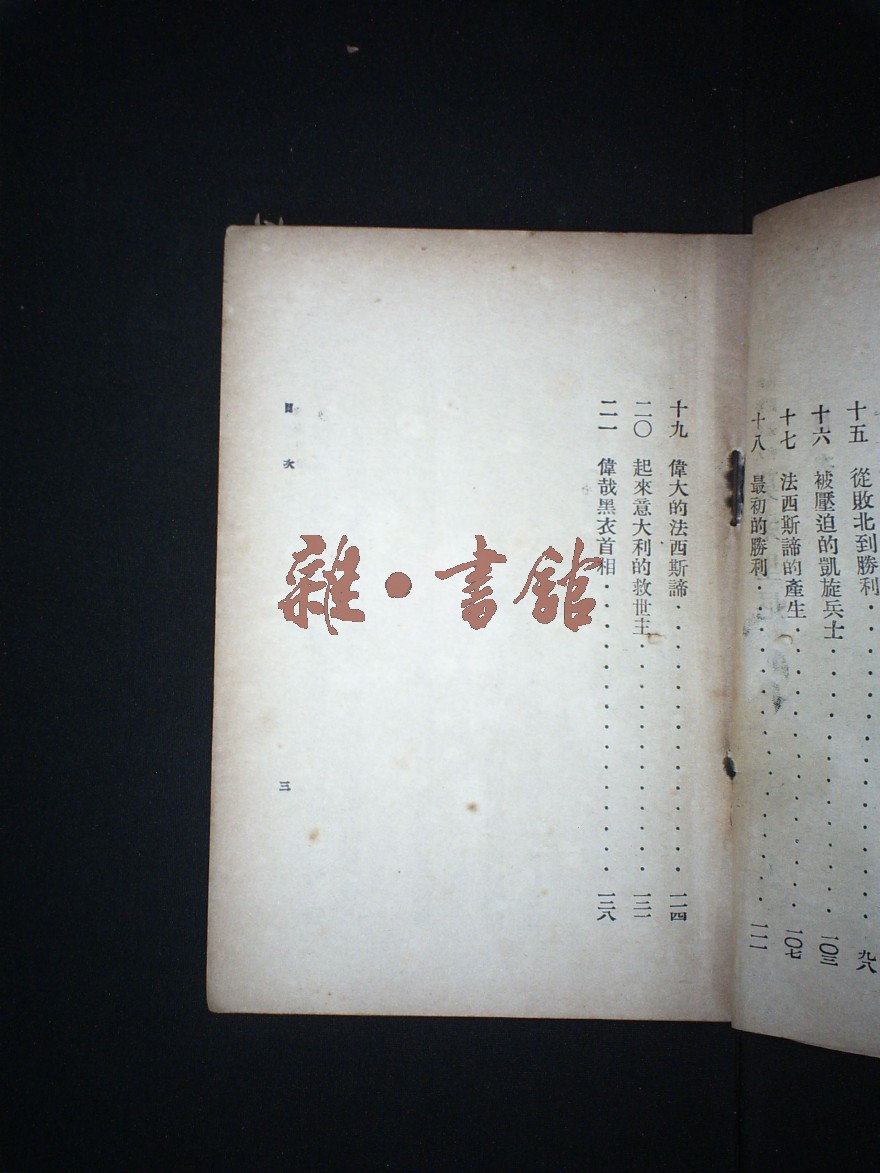 十五 從敗北到勝利·····················九八
十六 被壓迫的凱旋兵士·················一〇三
十七 法西斯諦的產生···················一〇七
十八 最初的勝利·······················一一一
十九 偉大的法西斯諦···················一一四
二〇 起來意大利的救世主···············一三一
二一 偉哉黑衣首相·····················一三八
目次 三
雜·書館